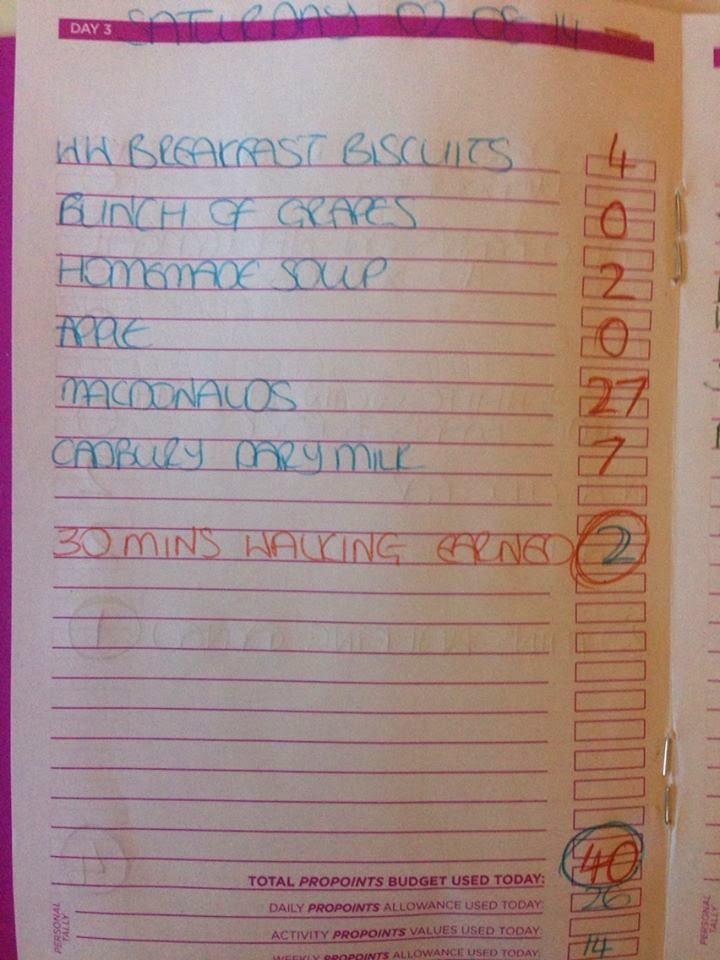 DAY 3 SATURDAY 02-08-14
WW BREAKFAST BISCUITS 4
BUNCH OF GRAPES 0
HOMEMADE SOUP 2
APPLE 0
MACDONALDS 27
CADBURY DARY MILK 7
30 MINS WALKING EARNED 2
TOTAL PROPOINTS BUDGET USED TODAY: 40
DAILY PROPOINTS ALLOWANCE USED TODAY: 26
ACTIVITY PROPOINTS VALUES USED TODAY:
WEEKLY PROPOINTS ALLOWANCE USED TODAY: 14
PERSONAL TALLY
PERSONAL TALLY